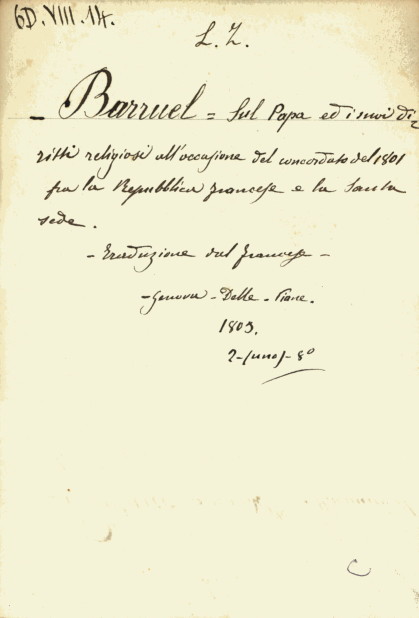 6D.VIII.14.
L. Z.
- Barruel = Sul Papa ed i suoi di=
ritti religiosi all'occasione del concordato del 1801
fra la Repubblica francese e la Santa
sede.
- Traduzione dal francese -
- Genova - Delle - Piane.
1803.
2 - (uno) - 8°
C